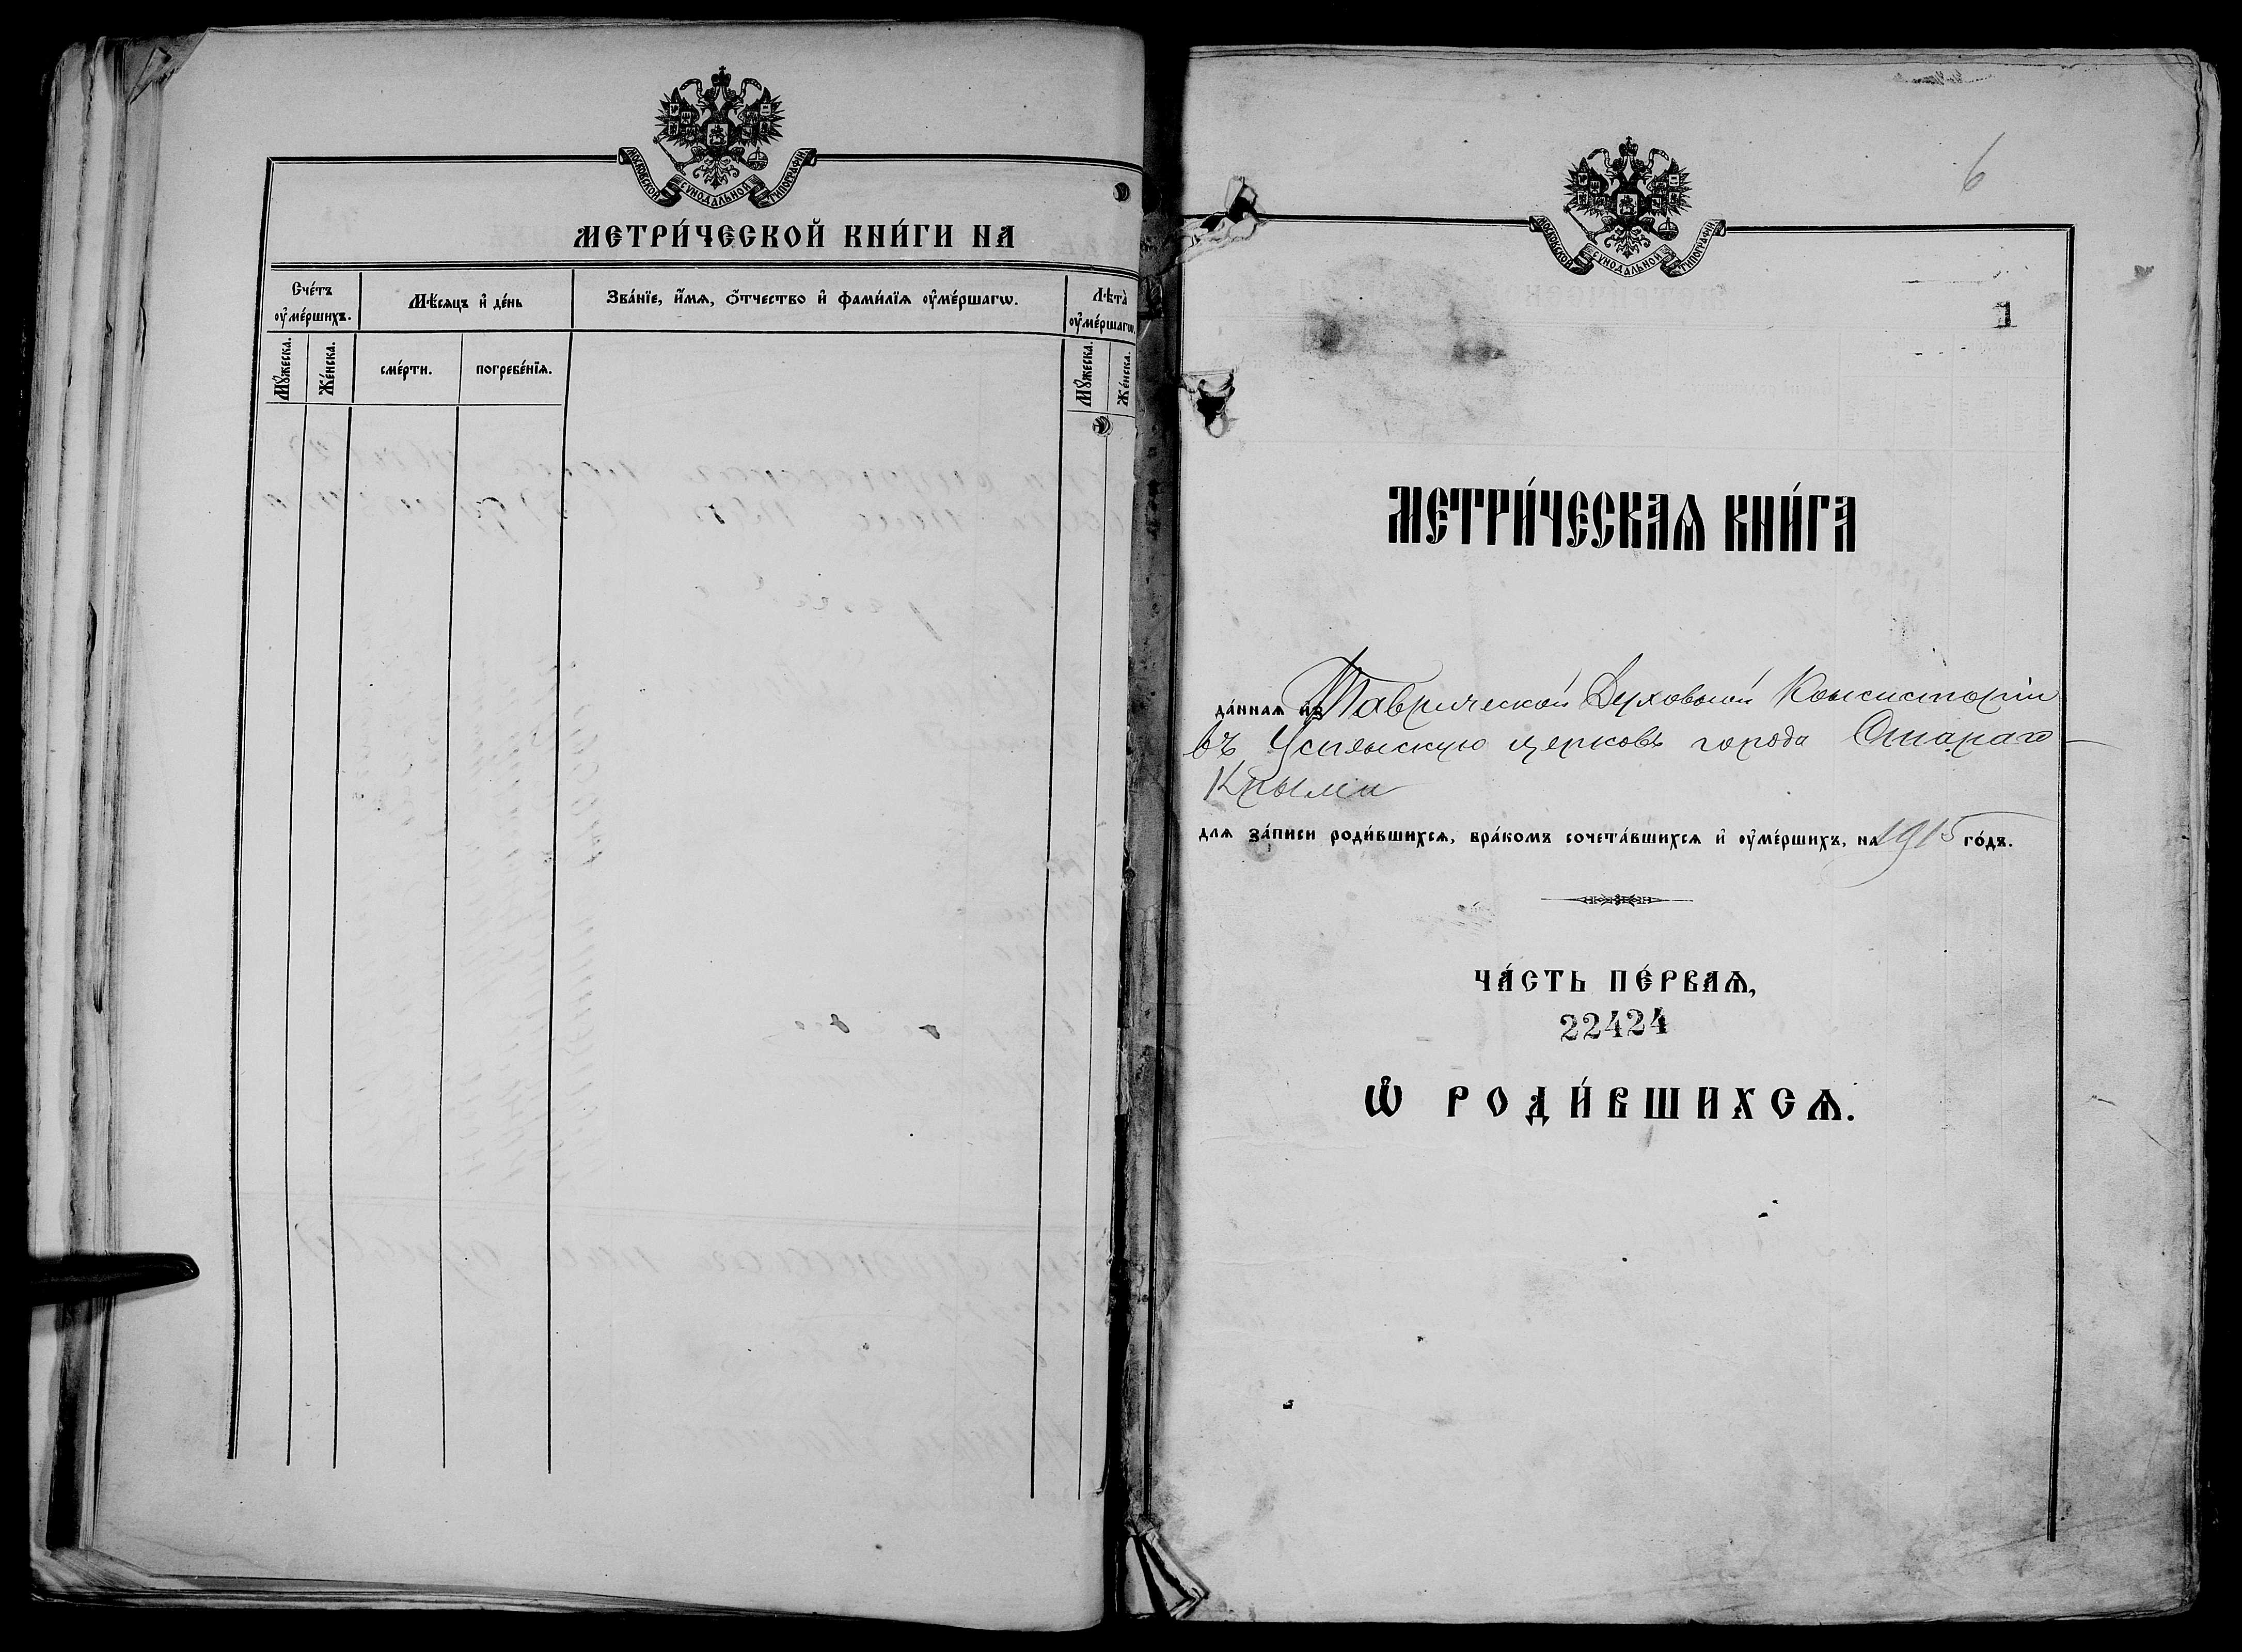 МОСКОВСКОЙ СѴНОДАЛЬНОЙ ТИПОГРАФІИ.
МЕТРИ́ЧЕСКОЙ КНИ́ГИ НА
Сче́тъ ᲂу҆ме́ршихъ.
Мѣ́сяцъ и҆ де́нь
Зва́нїе, и҆́мѧ, ѻ҆́тчество и҆ фами́лїѧ ᲂу҆ме́ршагѡ.
Лѣта̀ ᲂу҆ме́ршагѡ.
Мꙋ́жеска.
Же́нска.
сме́рти.
погребе́нїѧ.
Мꙋ́жеска.
Же́нска.
6
МОСКОВСКОЙ СѴНОДАЛЬНОЙ ТИПОГРАФІИ.
1
МЕТРИ́ЧЕСКАѦ КНИ́ГА
да́ннаѧ и҆з̾ Таврической Духовной Консисторіи
въ Успенскую церковь города Стараго-
Крыма
длѧ за́писи роди́вшихсѧ, бра́комъ сочета́вшихсѧ и҆ ᲂу҆ме́ршихъ, на 1915 го́дъ.
ЧА́СТЬ ПЕ́РВАѦ,
22424
Ѡ҆ РОДИ́ВШИХСѦ.